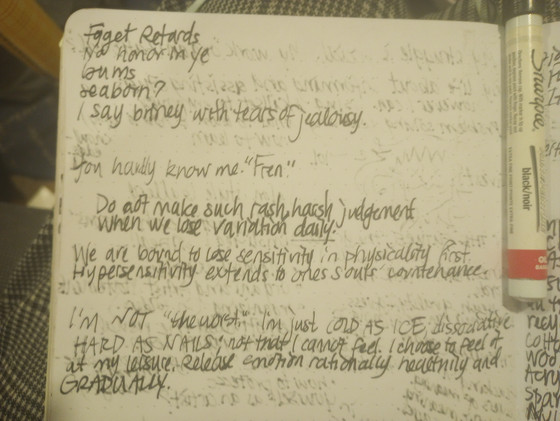 Fgget Retards
No honor in ye
bums
seaborn?
I say britney with tears of jealousy.
You hardly know me. "Fren."
Do not make such rash, harsh judgement
when we lose variation daily.
We are bound to lose sensitivity in physicality first.
Hypersensitivity extends to ones souls countenance.
I'M NOT "the worst." I'm just COLD AS ICE, dissociative
HARD AS NAILS; not that I cannot feel. I choose to feel it
at my leisure. Release emotion rationally, healthily and
GRADUALLY.
Sharpie
black/noir